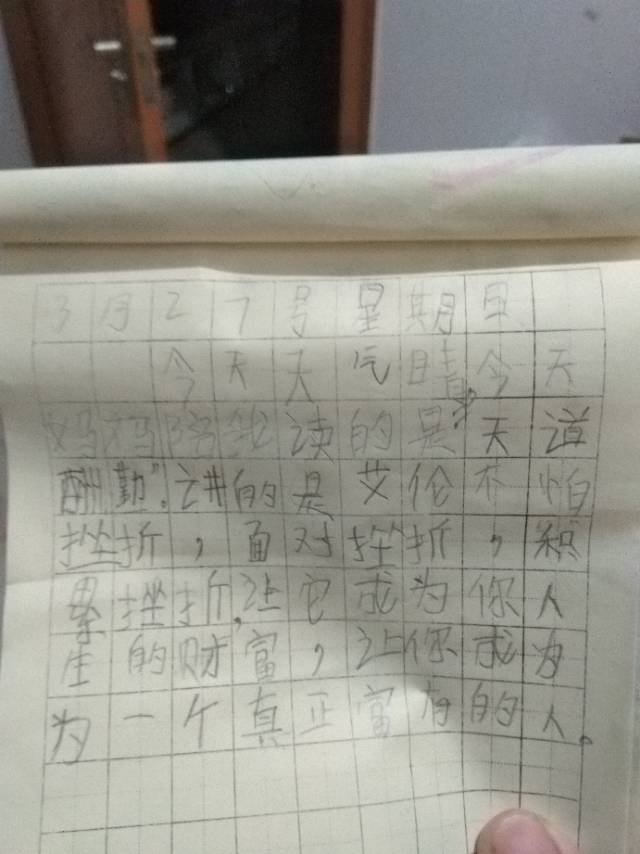 3月27号星期日
今天天气晴,今天
妈妈陪我读的是“天道
酬勤”。讲的是艾伦不怕
挫折,面对挫折,积
累挫折,让它成为你人
生的财富,让你成为
为一个真正富有的人。